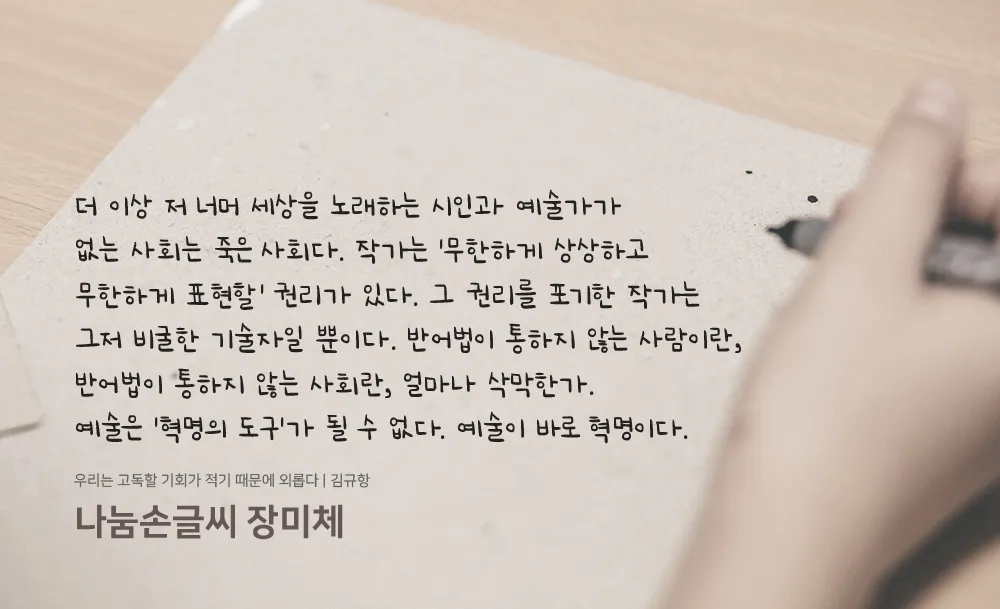 더 이상 저 너머 세상을 노래하는 시인과 예술가가
없는 사회는 죽은 사회다. 작가는 '무한하게 상상하고
무한하게 표현할' 권리가 있다. 그 권리를 포기한 작가는
그저 비굴한 기술자일 뿐이다. 반어법이 통하지 않는 사람이란,
반어법이 통하지 않는 사회란, 얼마나 삭막한가.
예술은 '혁명의 도구'가 될 수 없다. 예술이 바로 혁명이다.
우리는 고독할 기회가 적기 때문에 외롭다 | 김규항
나눔손글씨 장미체